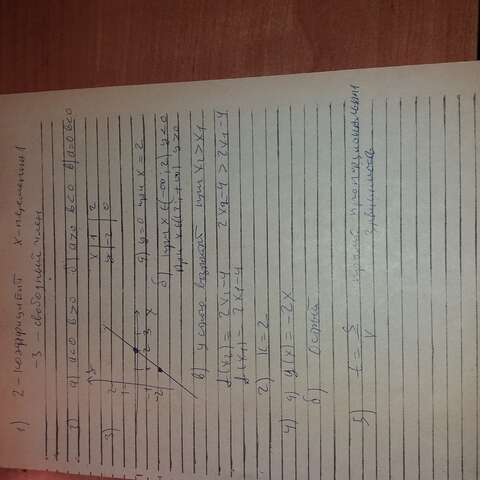 1) 2 - коэффициент x -
-3 - свободный член
2) а) a<0 b>0 б) a>0 b<0 в) a=0 b<0
3)
y
x 1 2
y -2 0
2
1
1 2 3 x
-1
-2
а) y=0 при x=2
б) при x∈(-∞;2) y<0
при x∈(2;+∞) y>0
в) при x2>x1
f(x2) = 2x2-4
f(x1) = 2x1-4
2x2-4 > 2x1-4
2) k=2
4) а) y(x) = -2x
б) Острый
5) t = S/V